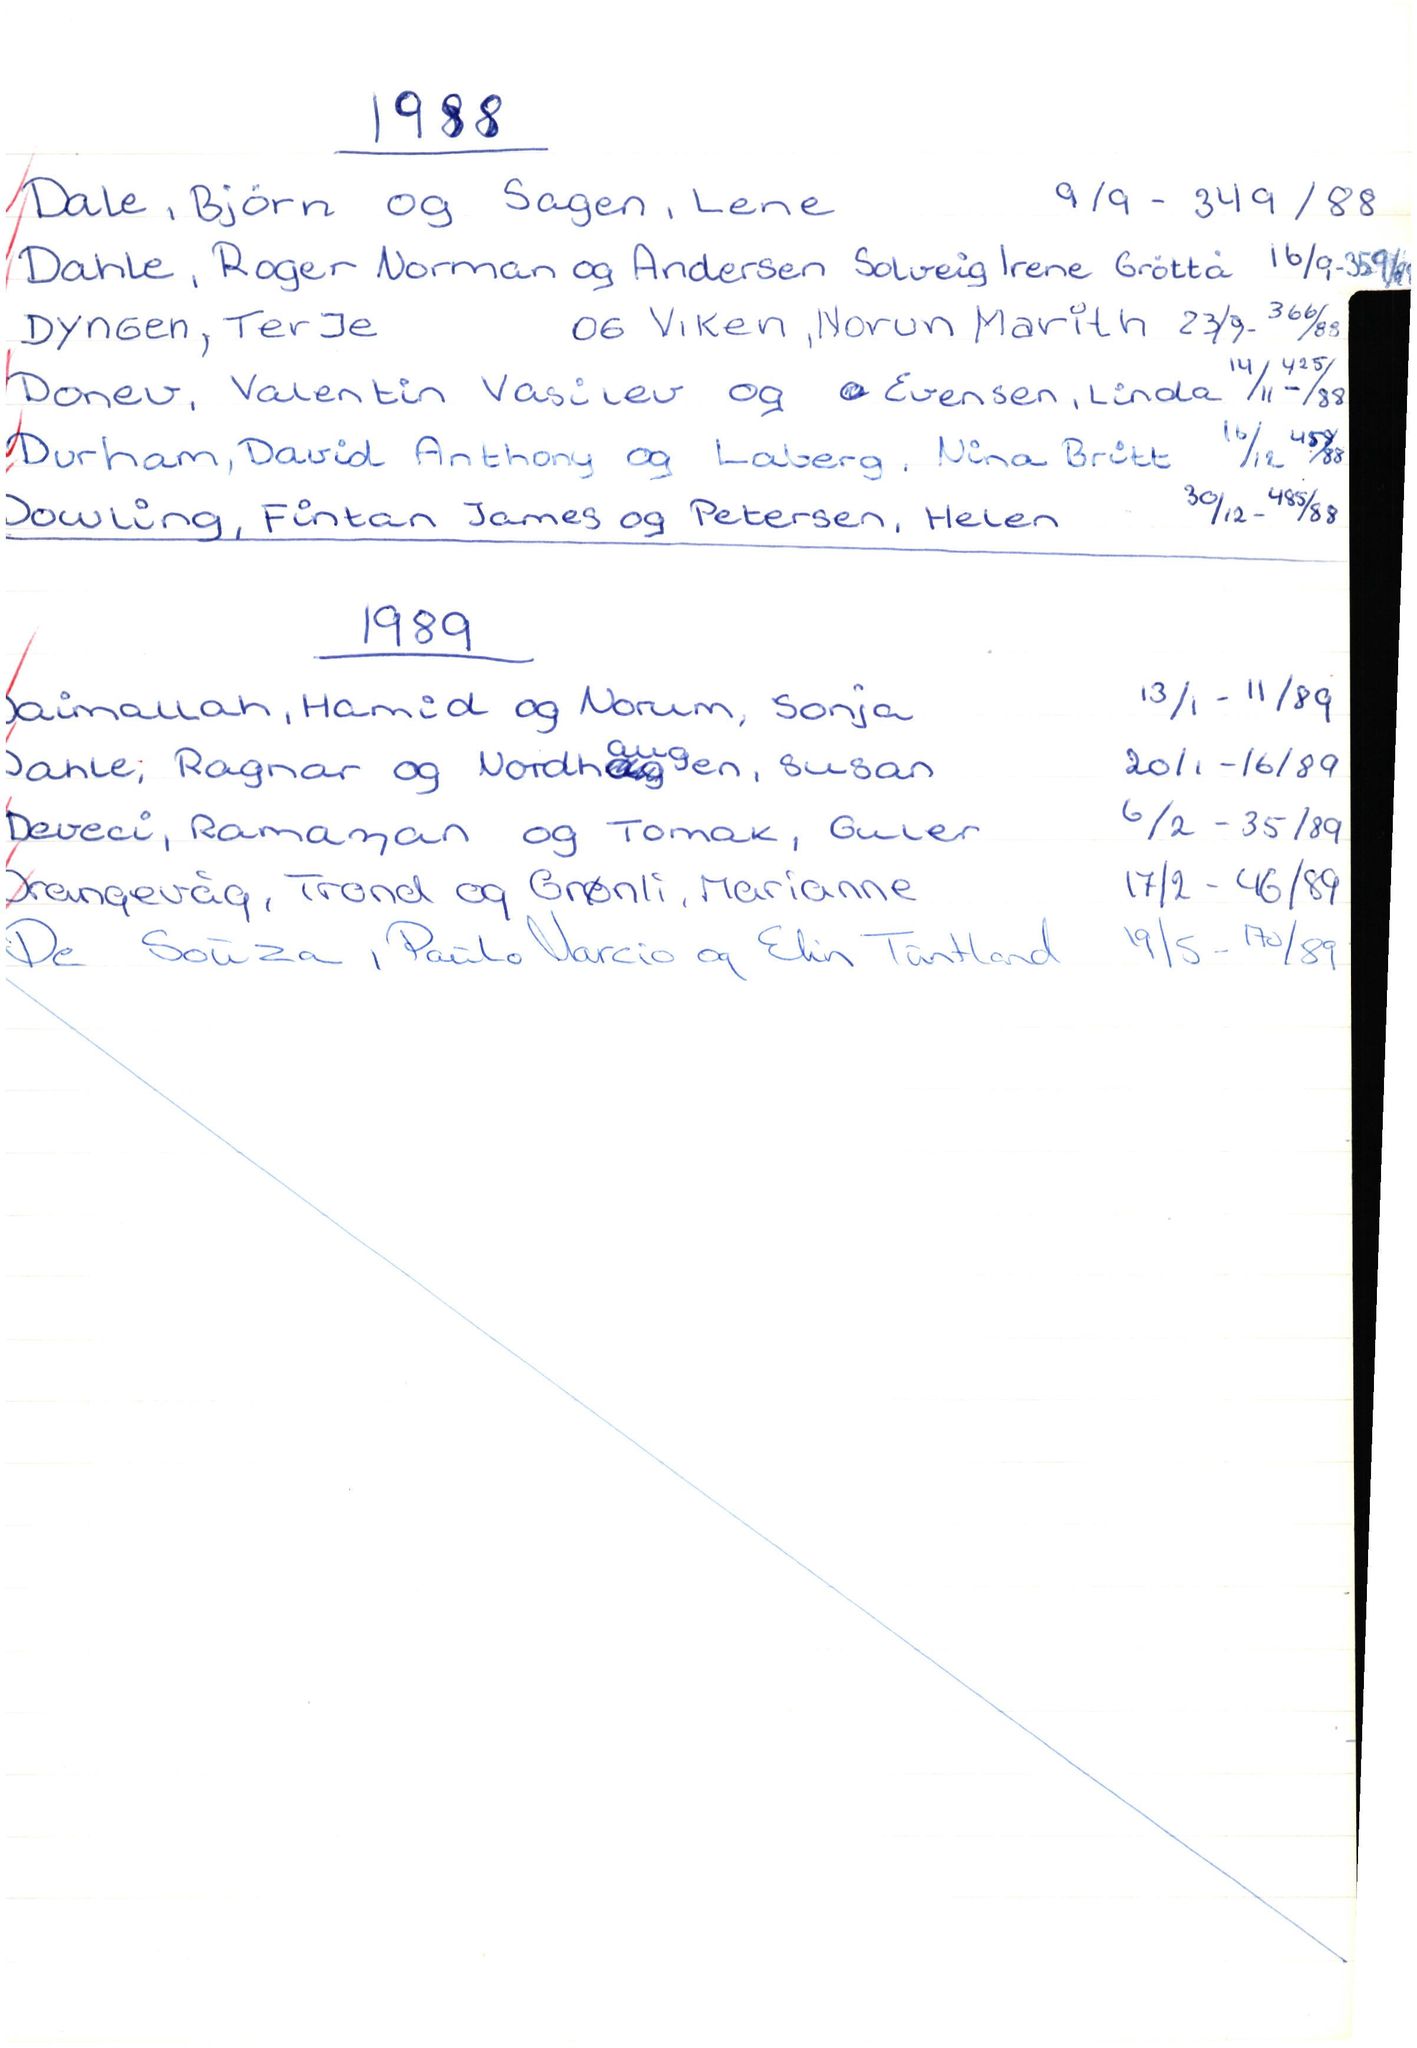 1988
Dale, Björn og Sagen, Lene 9/9 - 349/88
Dahle, Roger Norman og Andersen Solveig Irene Gröttå 16/9-359/88
Dyngen, Terje og Viken, Norun Marith 23/9- 366/88
Donev, Valentin Vasilev og Evensen, Linda 14/11 - 425/88
Durham, David Anthony og Laberg, Nina Britt 16/12 458/88
Dowling, Fintan James og Petersen, Helen 30/12 - 485/88
1989
Daimallah, Hamid og Norum, Sonja 13/1 - 11/89
Dahle, Ragnar og Nordhaugen, Susan 20/1 - 16/89
Deveci, Ramazan og Tomak, Guler 6/2 - 35/89
Drangevåg, Trond og Grønli, Marianne 17/2 - 46/89
De Souza, Paulo Marcio og Elin Tuntland 19/5 - 170/89